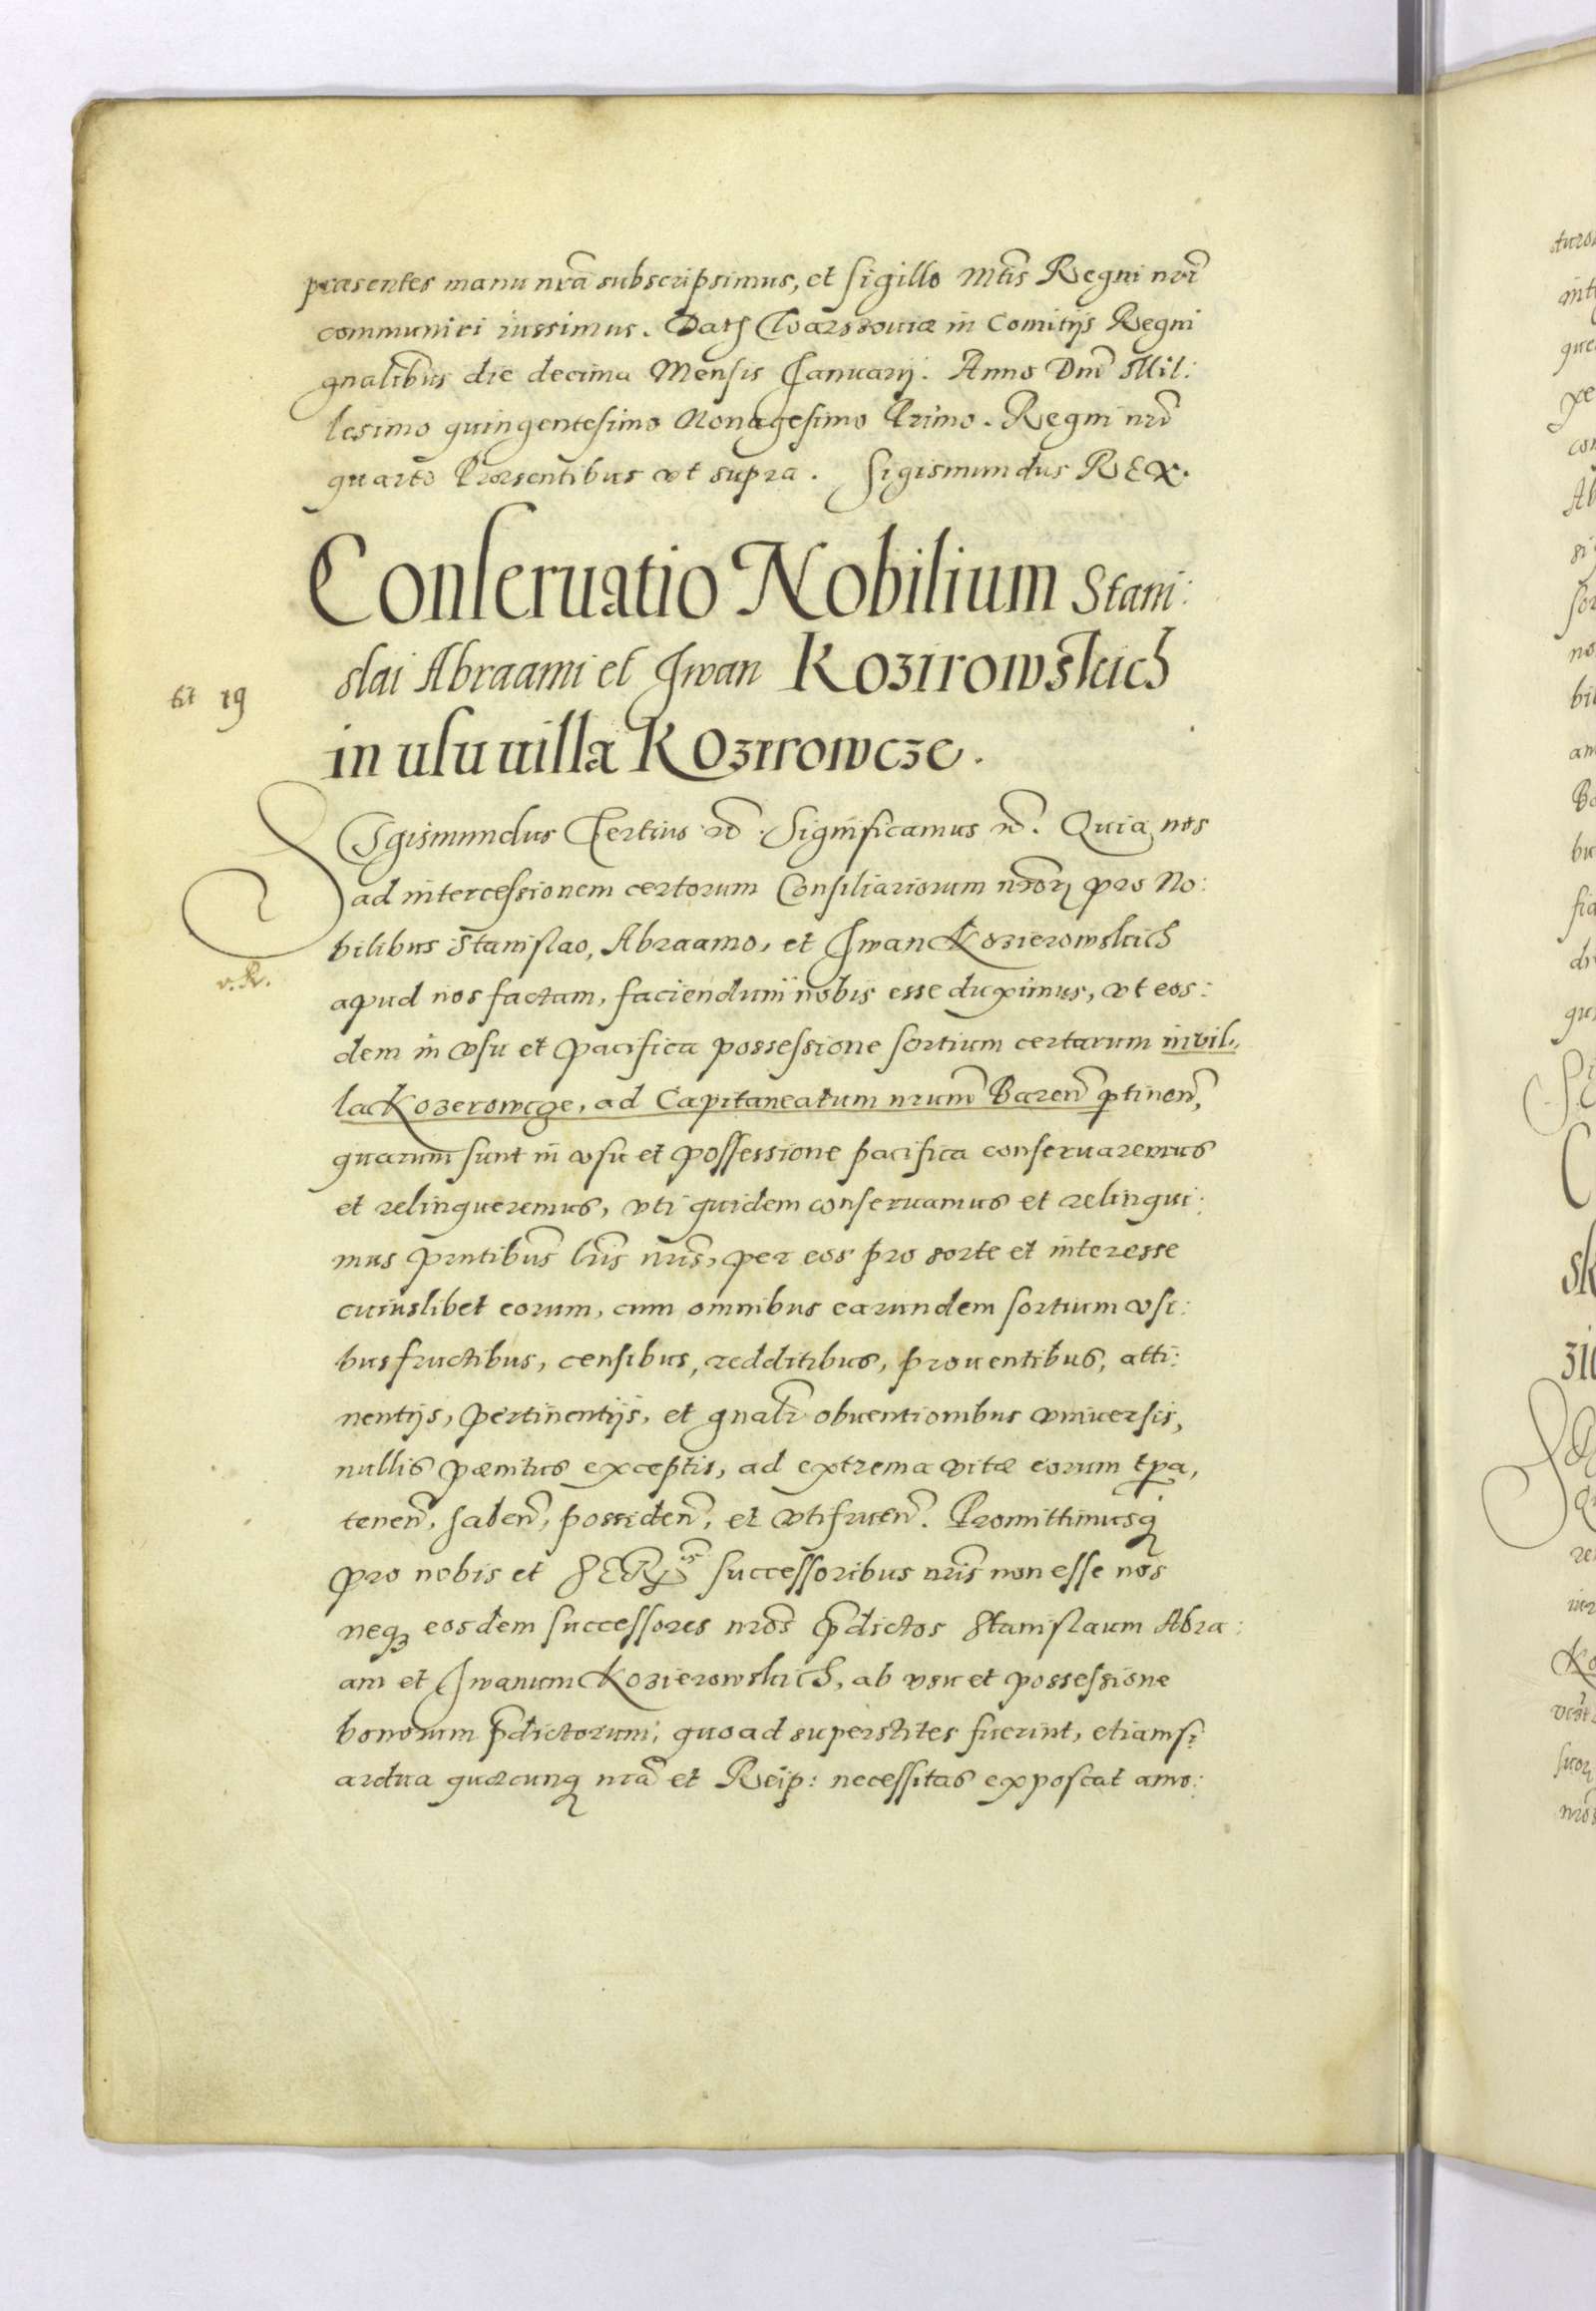 præsentes manu nrã subscripsimus, et sigillo Mtis Regni nrĩ
communiri iussimus. Dat. Warssouiæ in Comitijs Regni
gnalibus die decima Mensis Januarij. Anno Dnĩ Mil:
lesimo quingentesimo Nonagesimo Primo. Regni nrĩ
quarto Præsentibus vt supra. Sigismundus REX.
Conseruatio Nobilium Stani:
slai Abraami et Jwan Kozirowskich
19
in usu uillæ Kozirowcze.
Sigismundus Tertius Significamus Quia nos
ad intercessionem certorum Consiliariorum nrõrz pro No:
bilibus Stanislao, Abraamo, et Jwan Kozierowskich
v. R.
apud nos factam, faciendum nobis esse duximus, vt eos:
dem in vsu et pacifica possessione sortium certarum in vil:
la Kozerowcze, ad Capitaneatum nrum Baren ptinen,
quarum sunt in vsu et possessione pacifica conseruaremus
et relinqueremus, vti quidem conseruamus et relinqui:
mus pntibus lris nris, per eos pro sorte et interesse
cuiuslibet eorum, cum omnibus earundem sortium vsi:
busfructibus, censibus, redditibus, prouentibus, atti:
nentijs, pertinentijs, et gnalr obuentionibus vniuersis,
nullis pænitus exceptis, ad extrema vitæ eorum tpa,
tenen, haben, possiden, et vtifruen. Promittimusq
pro nobis et SERmis successoribus nris non esse nos
neqz eosdem successores nros pdictos Stanislaum Abra:
am et Jwanum Kozierowskich, ab vsu et possessione
bonorum pdictorum, quoad superstites fuerint, etiamsi
ardua quæcunq nra et Reip: necessitas exposcat amo: